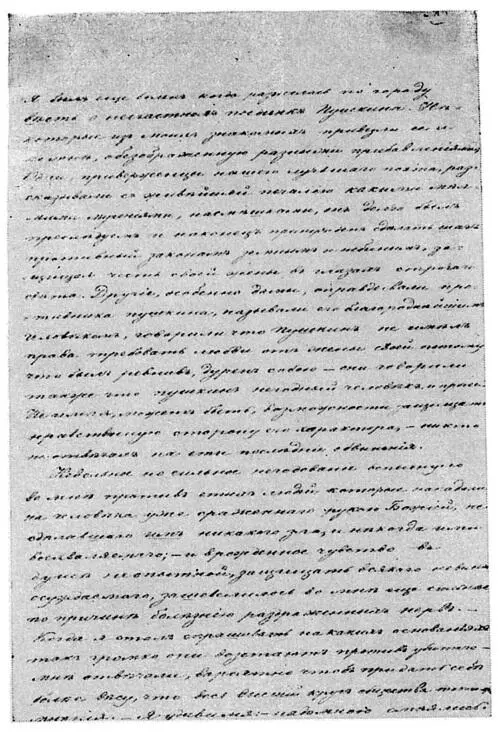 Я былъ еще боленъ когда разнеслась по городу
вѣсть о несчастномъ поединкѣ Пушкина. Нѣ-
которые изъ моихъ знакомыхъ привезли ее и
ко мнѣ, обезображенную разными прибавленіями
Одни, приверженцы нашего лучшаго поэта, раз
сказывали съ живѣйшей печалію какими мел-
кими мученіями, насмѣшками, онъ долго былъ
преслѣдуемъ и наконецъ принужденъ сдѣлать шагъ
противный законамъ земнымъ и небеснымъ, за-
щищая честь своей жены въ глазахъ строгаго
свѣта. Другіе, особенно дамы, оправдывали про
тивника Пушкина, называли его благороднѣйшимъ
человѣкомъ, говорили что Пушкинъ не имѣлъ
права требовать любви отъ жены своей потому
что былъ ревнивъ, дуренъ собою – они говорили
также что Пушкинъ негодный человѣкъ и проч.
Не имѣя, можетъ быть, возможности защищать
нравственную сторону его характера, – никто
не отвѣчалъ на эти послѣднія обвиненія.
Невольное но сильное негодованіе вспыхнуло
во мнѣ противъ этихъ людей которые нападали
на человѣка уже сраженнаго рукою Божіей, не
сдѣлавшаго имъ никакого зла, и нѣкогда ими
восхваляемаго; – и врожденное чувство въ
душѣ неопытной, защищать всякаго невинно
осуждаемаго, зашевелилось во мнѣ еще сильнѣе
по причинѣ болѣзнію раздраженныхъ нервъ. –
Когда я сталъ спрашивать на какихъ основаніяхъ
такъ громко они возстаютъ противъ убитаго –
мнѣ отвѣчали, вѣроятно чтобъ придать себѣ
болѣе вѣсу, что весь высшій кругъ общества такого
мнѣнія. – Я удивился: – надо мною смѣялись.